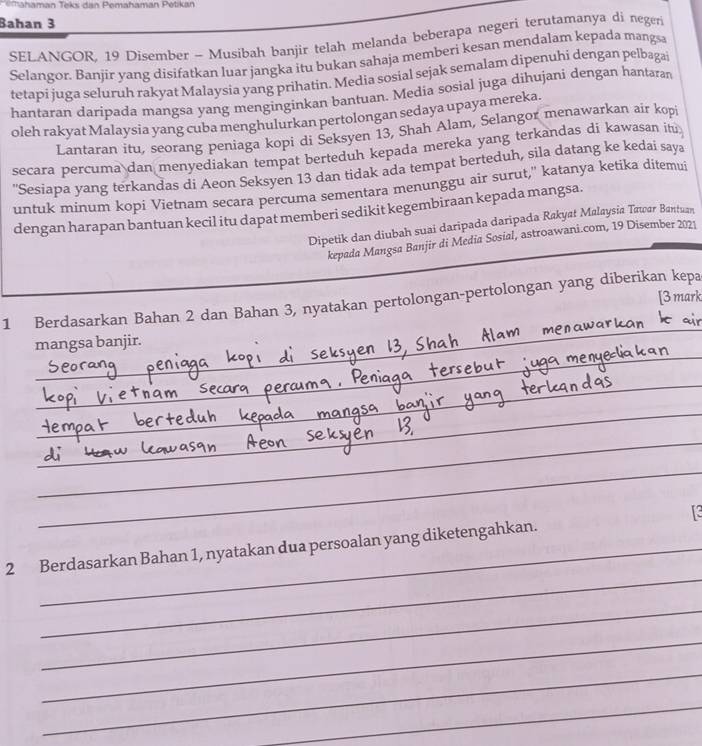 emahaman Teks dan Pemahaman Petikan
Bahan 3
SELANGOR, 19 Disember – Musibah banjir telah melanda beberapa negeri terutamanya di negeri
Selangor. Banjir yang disifatkan luar jangka itu bukan sahaja memberi kesan mendalam kepada mangsa
tetapi juga seluruh rakyat Malaysia yang prihatin. Media sosial sejak semalam dipenuhi dengan pelbagai
hantaran daripada mangsa yang menginginkan bantuan. Media sosial juga dihujani dengan hantaran
oleh rakyat Malaysia yang cuba menghulurkan pertolongan sedaya upaya mereka.
Lantaran itu, seorang peniaga kopi di Seksyen 13, Shah Alam, Selangor menawarkan air kopi
secara percuma dan menyediakan tempat berteduh kepada mereka yang terkandas di kawasan itu.
"Sesiapa yang terkandas di Aeon Seksyen 13 dan tidak ada tempat berteduh, sila datang ke kedai saya
untuk minum kopi Vietnam secara percuma sementara menunggu air surut," katanya ketika ditemui
dengan harapan bantuan kecil itu dapat memberi sedikit kegembiraan kepada mangsa.
Dipetik dan diubah suai daripada daripada Rakyat Malaysia Tawar Bantuan
kepada Mangsa Banjir di Media Sosial, astroawani.com, 19 Disember 2021
1 Berdasarkan Bahan 2 dan Bahan 3, nyatakan pertolongan-pertolongan yang diberikan kepa
mangsa banjir. [3 mark
Seorang peniaga kopi di seksyen 13, Shah Alam menawarkan air
kopi Vietnam secara percuma. Peniaga tersebut juga menyediakan
tempat berteduh kepada mangsa banjir yang terkandas
di kawasan Aeon seksyen 13.
2 Berdasarkan Bahan 1, nyatakan dua persoalan yang diketengahkan. [3